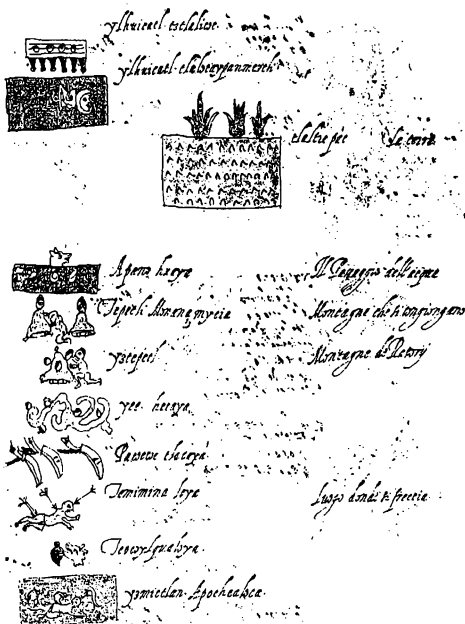 ylhuicatl
ylhuicatl tlalocaypanmeztli
tlalticpac la terra
Apano huaya Il Passaggio dell'acque
Tepetl Monanamycia Montagne che si congiongono
yztepetl Montagne di Rasorij
yee hecaya
Pacoeco tlacoya
Temimina loya Luogo donde si freccia
Teocoylqualoya
yzmictlan Apochcaloca